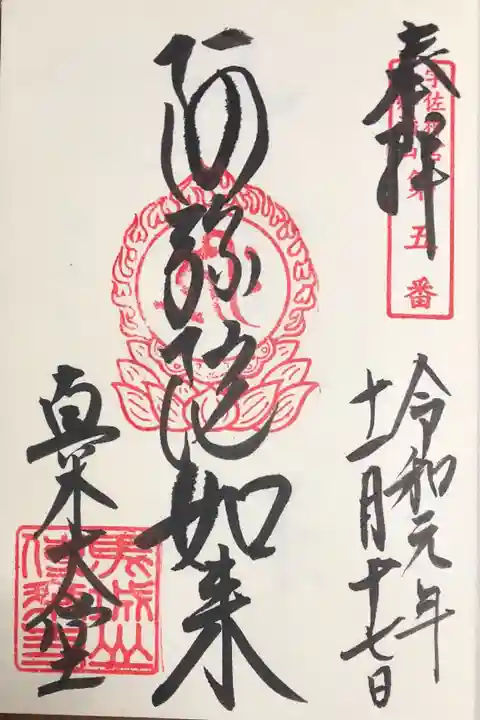 奉拝
第五番
令和元年
十一月十七日
阿弥陀如来
真木大堂